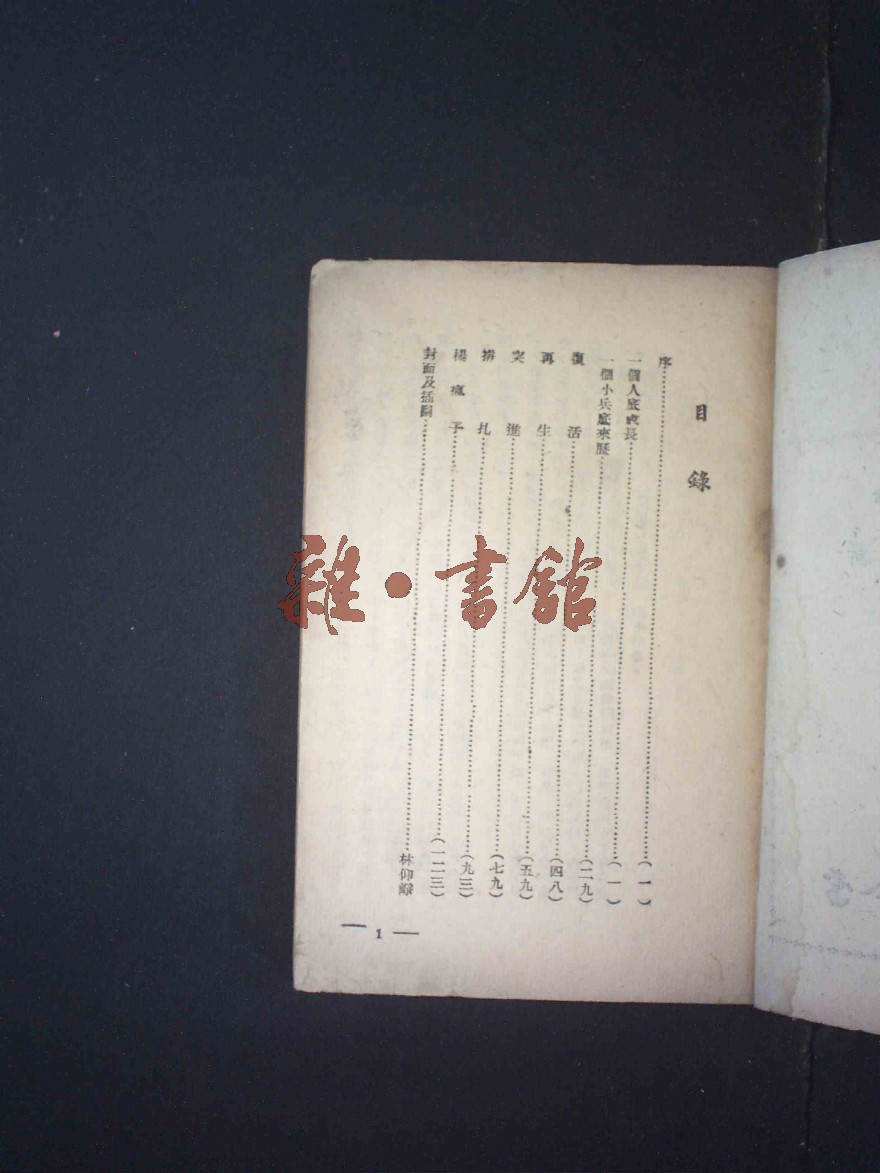 目錄
序……(一)
一個人底成長……(一)
一個小兵底來歷……(二九)
復活……(四八)
再生……(五九)
突進……(七九)
掙扎……(九三)
楊瘋子……(一二三)
封面及插圖……林仰崢
— 1 —
雜·書館